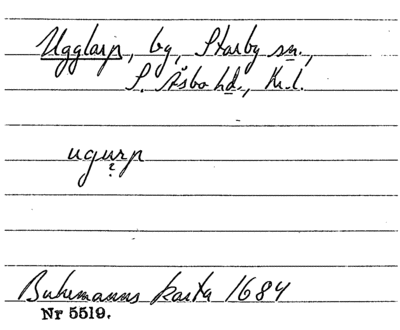 Ugglarp, by, Starby sn.,
S. Åsbo hd., Kr. l.
ugurp
?
Buhrmanns karta 1684
Nr 5519.